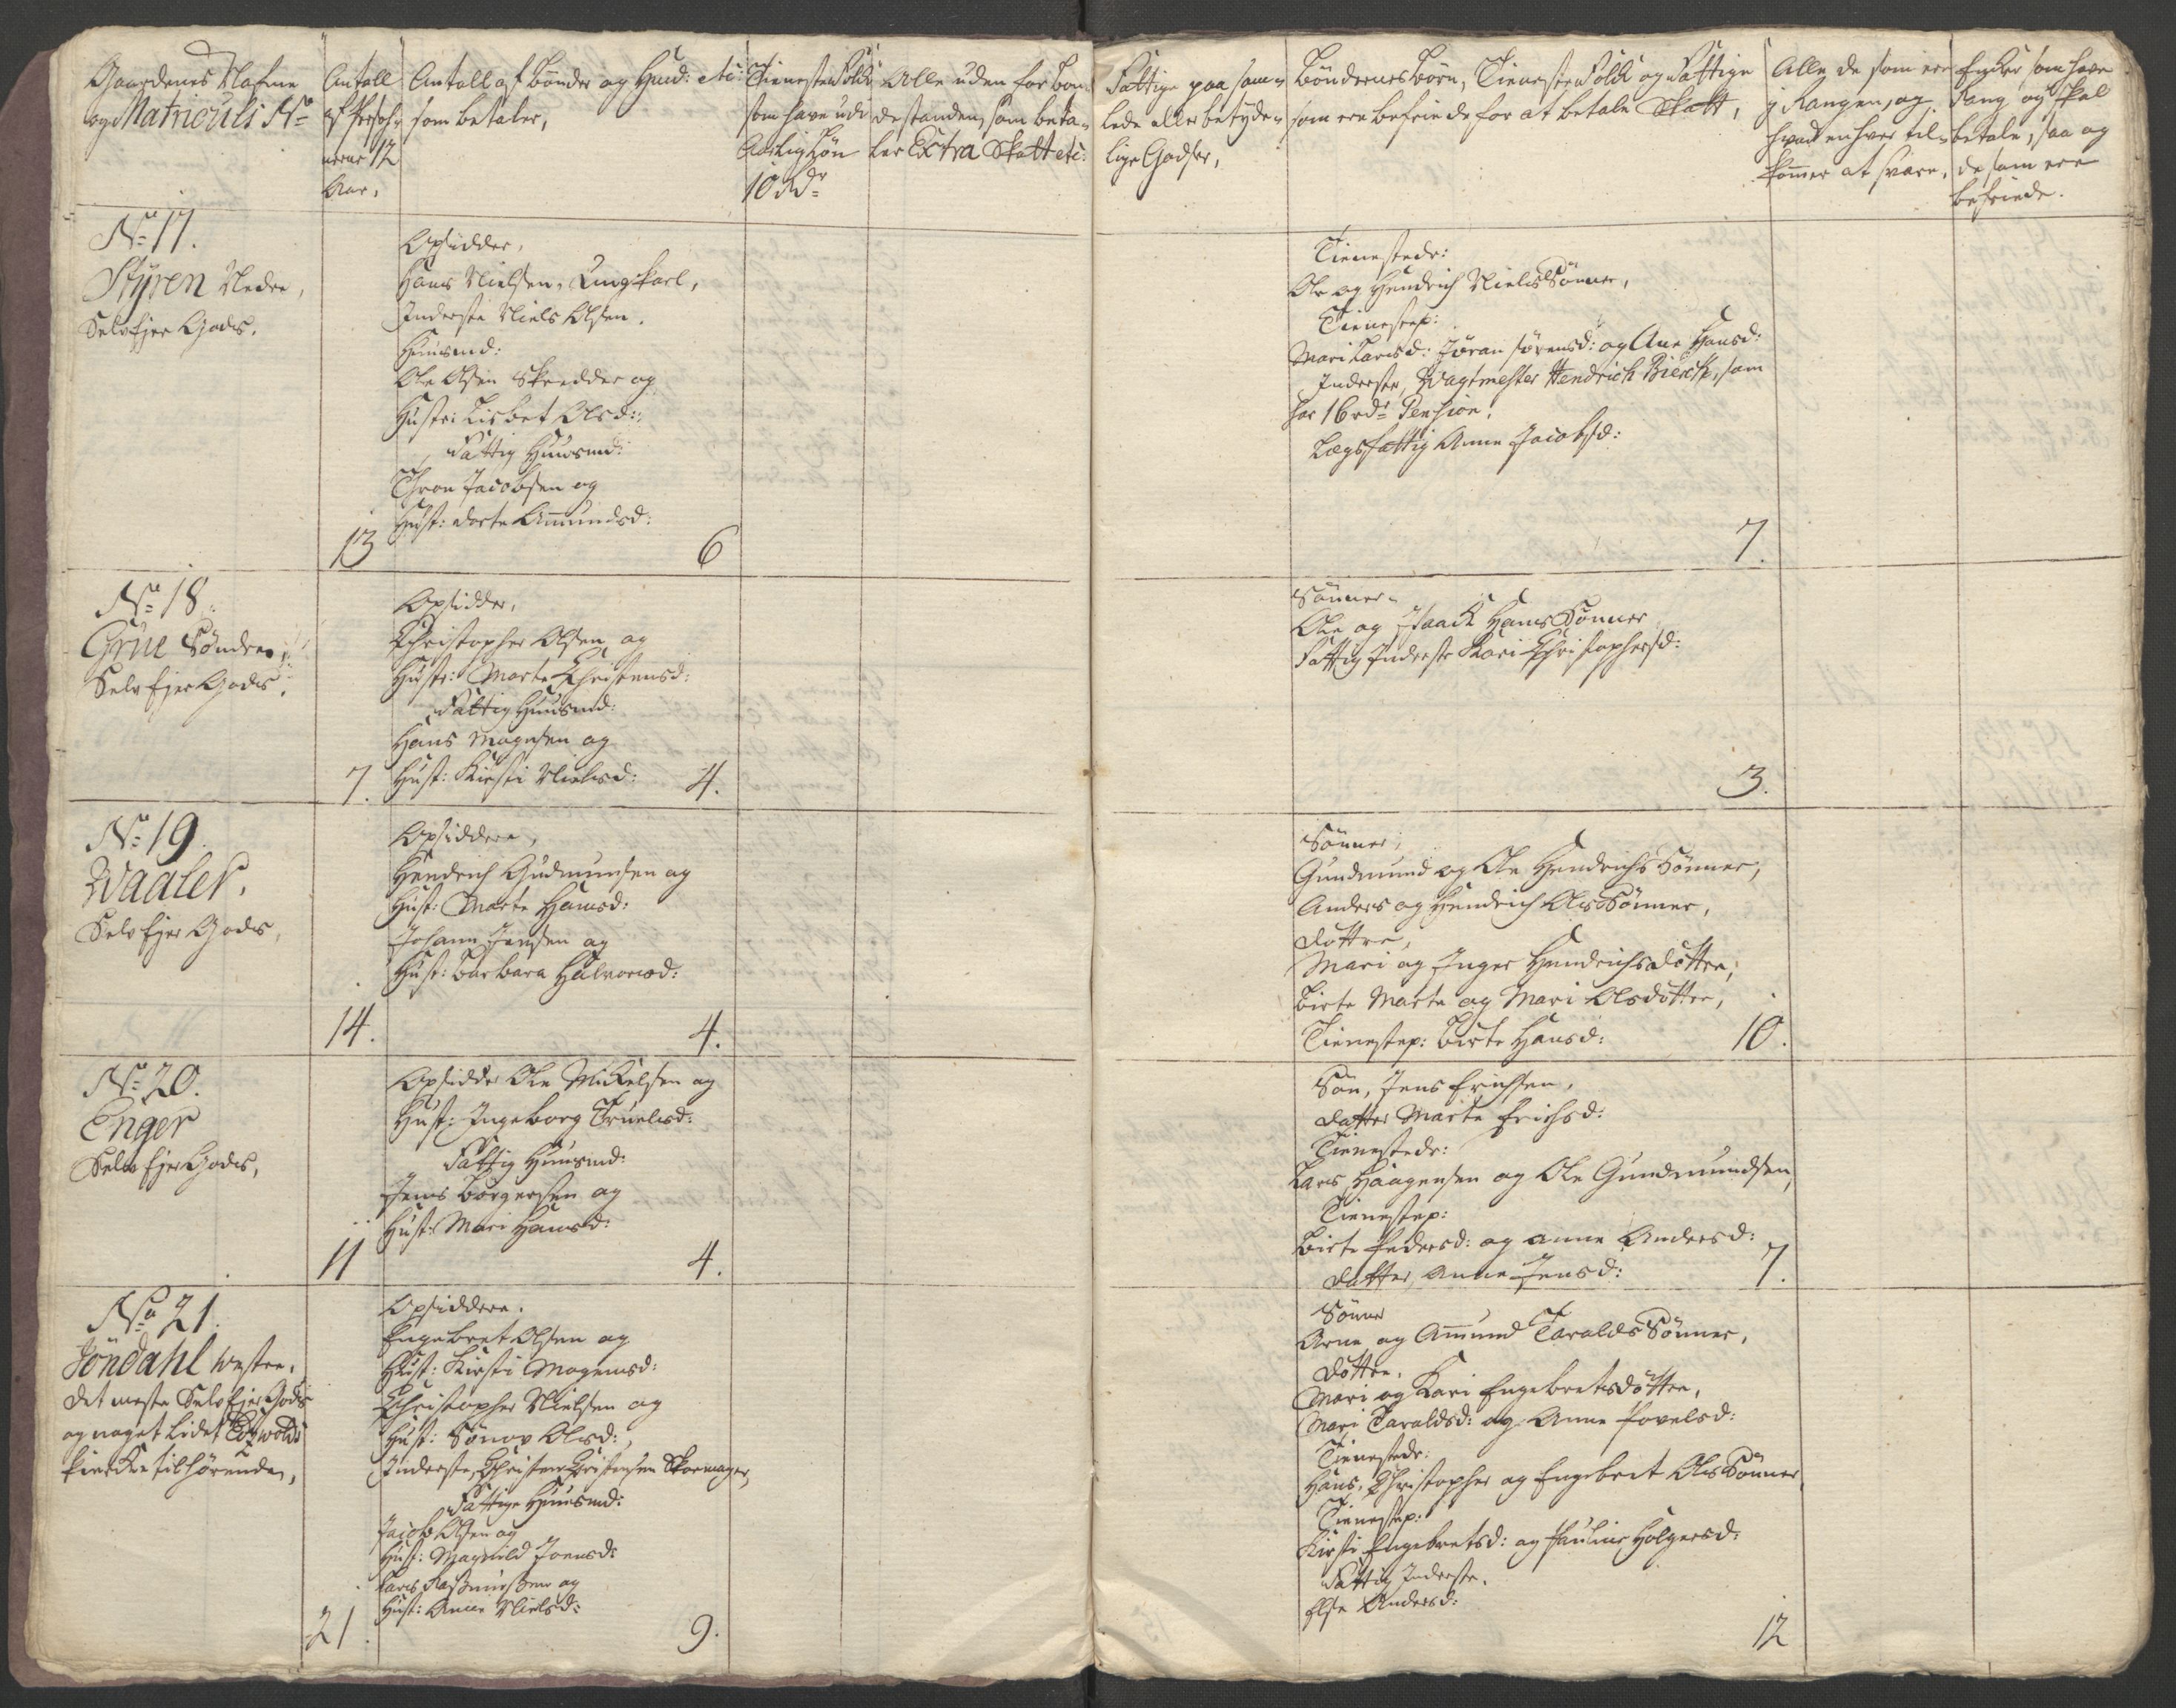 Gaardenes Nafne
og Matriculs No
Antall
af Persoh-
nerne 12
Aar,
Antall af bønder og Huusd: etc:
som betaler,
Tieneste Folck
som have udi
Aarlig Løn
10 Rdr
Alle uden for bon-
destanden, som beta-
ler Extra Skatt etc:
Fattige paa sam-
lede eller betyde-
lige Godser,
Bøndernes Børn, Tieneste Folck og Fattige
som ere befriede for at betale Skatt,
Alle de som ere
i Rangen, og
hvad enhver til-
kommer at svare,
Encker som have
Rang og skal
betale, saa og
de som ere
befriede.
No 17.
Styren Nedre,
Selv Ejer Gods.
13
Opsidder,
Hans Nielsen, Ungkarl,
Inderste Niels Olsen.
Huusmd:
Ole Olsen Skredder og
Hustr: Lisbet Olsd:
Fattig Huusmd:
Thron Jacobsen og
Hust: Dorte Amundsd:
6
Tienestedr:
Ole og Hendrich Niels Sønner,
Tienestep:
Mari Larsd: Jøran Sørensd: og Ane Hansd:
Inderste, Wagtmester Hendrich Bierch, som
har 16 rdr Pension.
Lægsfattig Anne Jacobsd:
7.
No 18.
Grue Søndre,
Selv Ejer Gods.
7.
Opsidder,
Christopher Olsen og
Hustr: Marte Christensd:
Fattig Huusmd:
Hans Magnsen og
Hust: Kirsti Nielsd:
4.
Sønner.
Ole og Isaack Hans Sønner
Fattig Inderste Kari Christophersd:
3.
No 19.
Waaler.
Selv Ejer Gods,
14.
Opsiddere,
Hendrich Gudmunsen og
Hust: Marte Hansd:
Johann Jensen og
Hust: Barbara Halvorsd:
4.
Sønner,
Gundmund og Ole Hendrichs Sønner,
Anders og Hendrich Ols Sønner,
Døttre,
Mari og Inger Hendrichsdøttre,
Birte Marte og Mari Olsdøttre,
Tienestep: Birte Hansd:
10.
No 20.
Enger
Selv Ejer Gods,
11
Opsidder Ole Mickelsen og
Hust: Ingeborg Truelsd:
Fattig Huusmd:
Jens Borgersen og
Hust: Mari Hansd:
4.
Søn, Jens Erichsen,
Datter Marte Erichsd:
Tienestedr:
Lars Haagensen og Ole Gundmundsen,
Tienestep:
Birte Pedersd: og Anne Andersd:
Datter, Anne Jensd:
7.
No 21.
Jöndahl Westre,
Det meste Selv Ejer Gods
og noget lidet Eidswolds
Kircke tilhørende,
21.
Opsiddere.
Engebret Olsen og
Hust: Kirsti Mogensd:
Christopher Nielsen og
Hust: Sønov Olsd:
Inderste, Christen Christensen Skoemager,
Fattige Huusmd:
Jacob Olsen og
Hust: Magnild Joensd:
Lars Rasmussen og
Hust: Anne Nielsd:
9.
Sønner
Arne og Amund Taralds Sønner,
Døttre,
Mari og Kari Engebretsdøttre,
Mari Taraldsd: og Anne Povelsd:
Tienestedr:
Hans, Christopher og Engebret Ols Sønner
Tienestep:
Kirsti Engebretsd: og Pauline Holgersd:
Fattig Inderste.
Else Andersd:
12